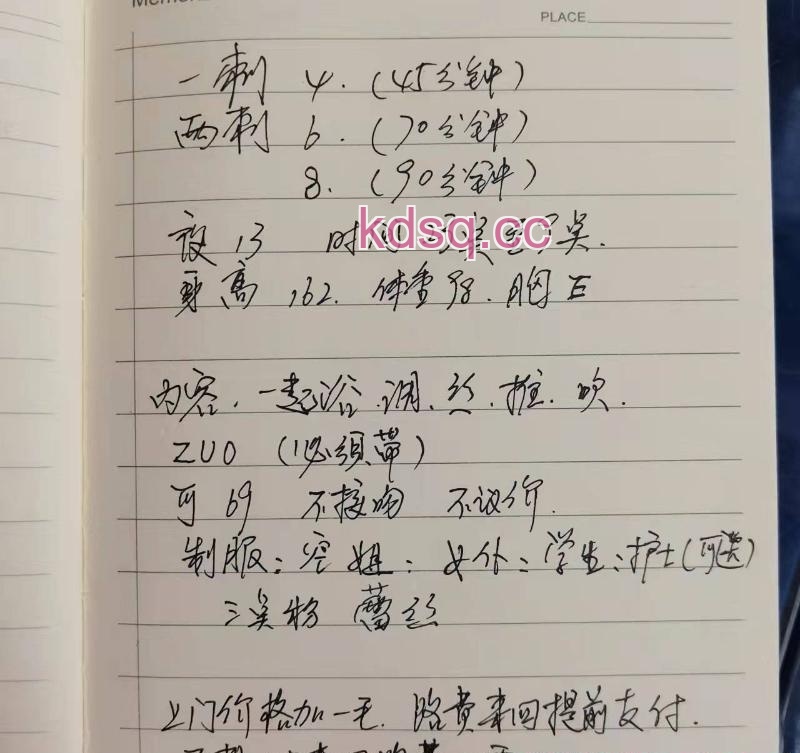 PLACE
一刺 4. (45分钟)
两刺 6. (70分钟)
8. (90分钟)
夜13 时间
kdsq.cc
身高 162. 体重98. 胸
内容. 一起浴.调.丝.推.吹.
ZUO (必须带)
可69 不接吻 不议价.
制服: 空姐: 女仆: 学生: 护士(可选)
粉 蕾丝
上门价格加一毛. 路费来回提前支付.